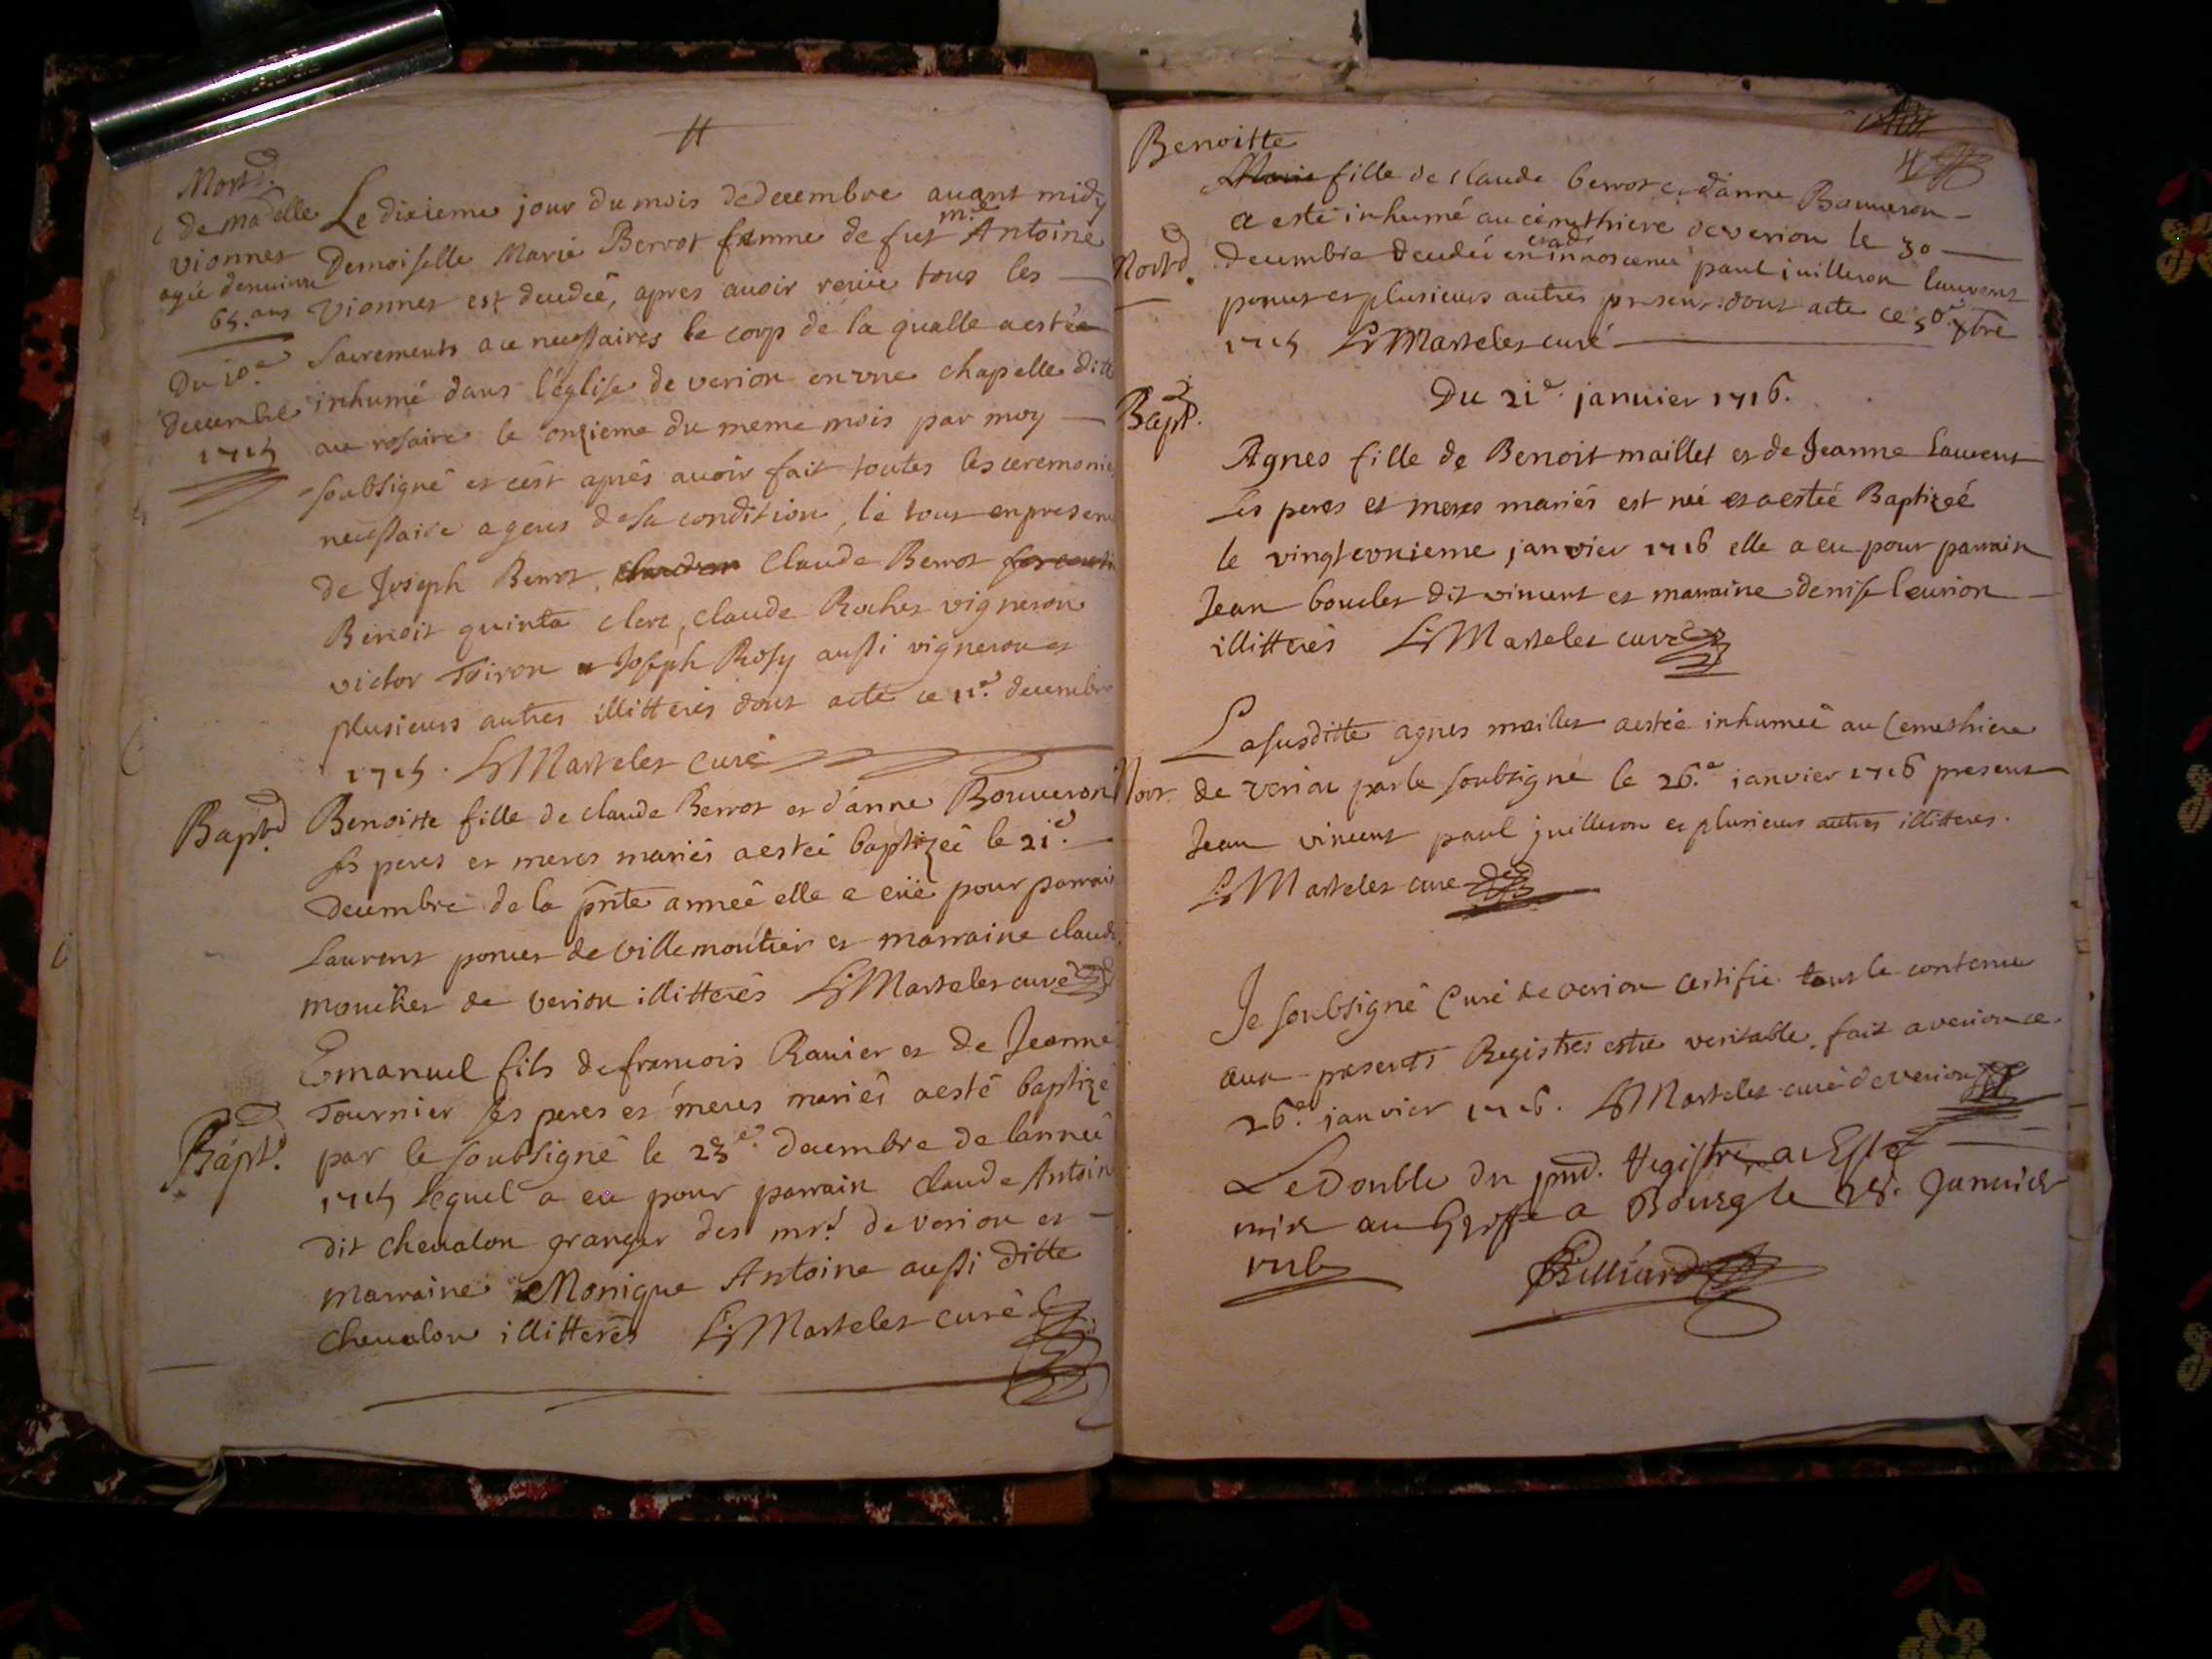 Mort.
de madelle
vionnet
agée denviron
65. ans
Du 10e
decembre
1715
Le dixieme jour du mois de decembre avant midy
Demoiselle Marie Berrot femme de fut mre Antoine
Vionnet est decedeé, apres avoir reciie tous les
Sacrements a ce necessaires le corp de la qualle a estée
inhumé dans l'église de verion en vne chapelle ditte
au rosaire le onzieme du meme mois par moy
soubsigné et cest aprés avoir fait toutes les ceremonies
necessaire a gens de sa condition, le tout en presence
de Joseph Berrot, Claude Berrot
Benoit quinta clerc, Claude Rochet vigneron
victor Toiron Joseph Rosy aussi vigneron et
plusieurs autres illitterés dont acte ce 11e decembre
1715. Martelet Curé
Bapt.
Benoitte fille de claude Berrot et d'anne Bouveron
ses peres et meres mariés a esteé baptizeé le 21e
decembre de la pnte anneé elle a eüe pour parrain
Laurent ponus de villemoutier et marraine claude
mouther de verion illitterés Martelet curé
Bapt.
Emanuel fils de francois Ravier et de Jeanne
Tournier ses peres et meres mariés a esté baptizé
par le soubsigné le 23e decembre de lanneé
1715 lequel a eu pour parrain Claude Antoine
dit chevalon granger des mrs de verion et
marraine Monique Antoine aussi ditte
chevalon illitterés Martelet curé
4
Benoitte
Mort.
Marie fille de Claude berrot et d'anne Bouveron
a esté inhumé au cemethiere de verion le 30
decembre decedeé en innoscence paul juilleron laurent
ponus et plusieurs autres present. dont acte ce 30e xbre
1715 Martelet curé
Du 21e janvier 1716.
Bapt.
Agnes fille de Benoit maillet et de Jeanne Laurent
ses peres et meres mariés est neé et a esteé Baptizeé
le vingtevnieme janvier 1716 elle a eu pour parrain
Jean boucler dit vincent et marraine denise leurion
illitterés Martelet curé
Mort.
La susditte agnes maillet a estée inhumeé au Cemethiere
de verion par le soubsigné le 26e janvier 1716 present
Jean vincent paul juilleron et plusieurs autres illitteres.
Martelet cure
Je soubsigné Curé de verion certifie tout le contenu
aux presents Registres estre veritable. fait a verion ce
26e janvier 1716. Martelet curé de verion
Le Double du pnt. Registre a Esté
mis au Greffe a Bourg le 28. Janvier